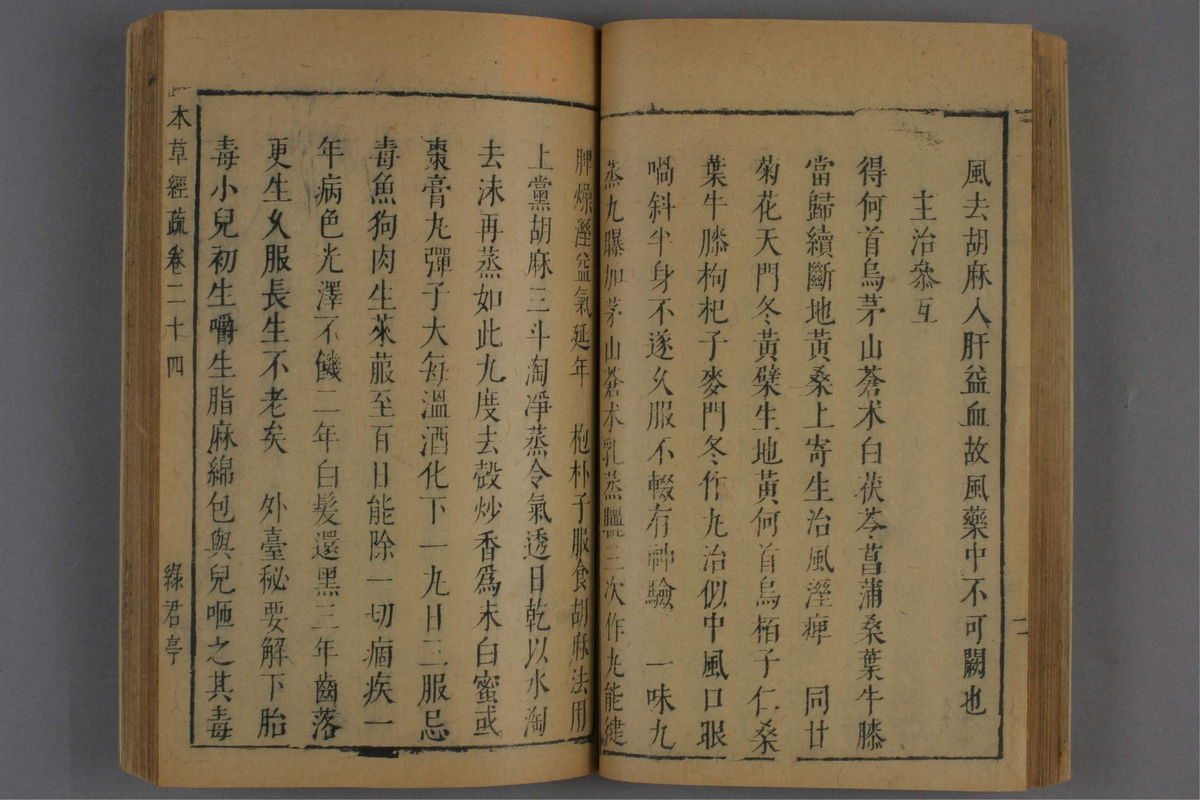 風去胡麻入肝益血故風藥中不可闕也
主治叅互
得何首烏茅山蒼术白茯苓菖蒲桑葉牛膝
當歸續斷地黃桑上寄生治風溼痺 同甘
菊花天門冬黃檗生地黃何首烏栢子仁桑
葉牛膝枸杞子麥門冬作丸治似中風口眼
喎斜半身不遂久服不輟有神驗 一味九
蒸九曝加茅山蒼术乳蒸曬三次作丸能健
脾燥溼益氣延年 抱朴子服食胡麻法用
上黨胡麻三斗淘凈蒸令氣透日乾以水淘
去沫再蒸如此九度去殼炒香爲末白蜜或
棗膏丸彈子大每溫酒化下一丸日三服忌
毒魚狗肉生萊菔至百日能除一切痼疾一
年病色光澤不饑二年白髮還黑三年齒落
更生久服長生不老矣 外臺秘要解下胎
毒小兒初生嚼生脂麻綿包與兒咂之其毒
本草經疏卷二十四 綠君亭